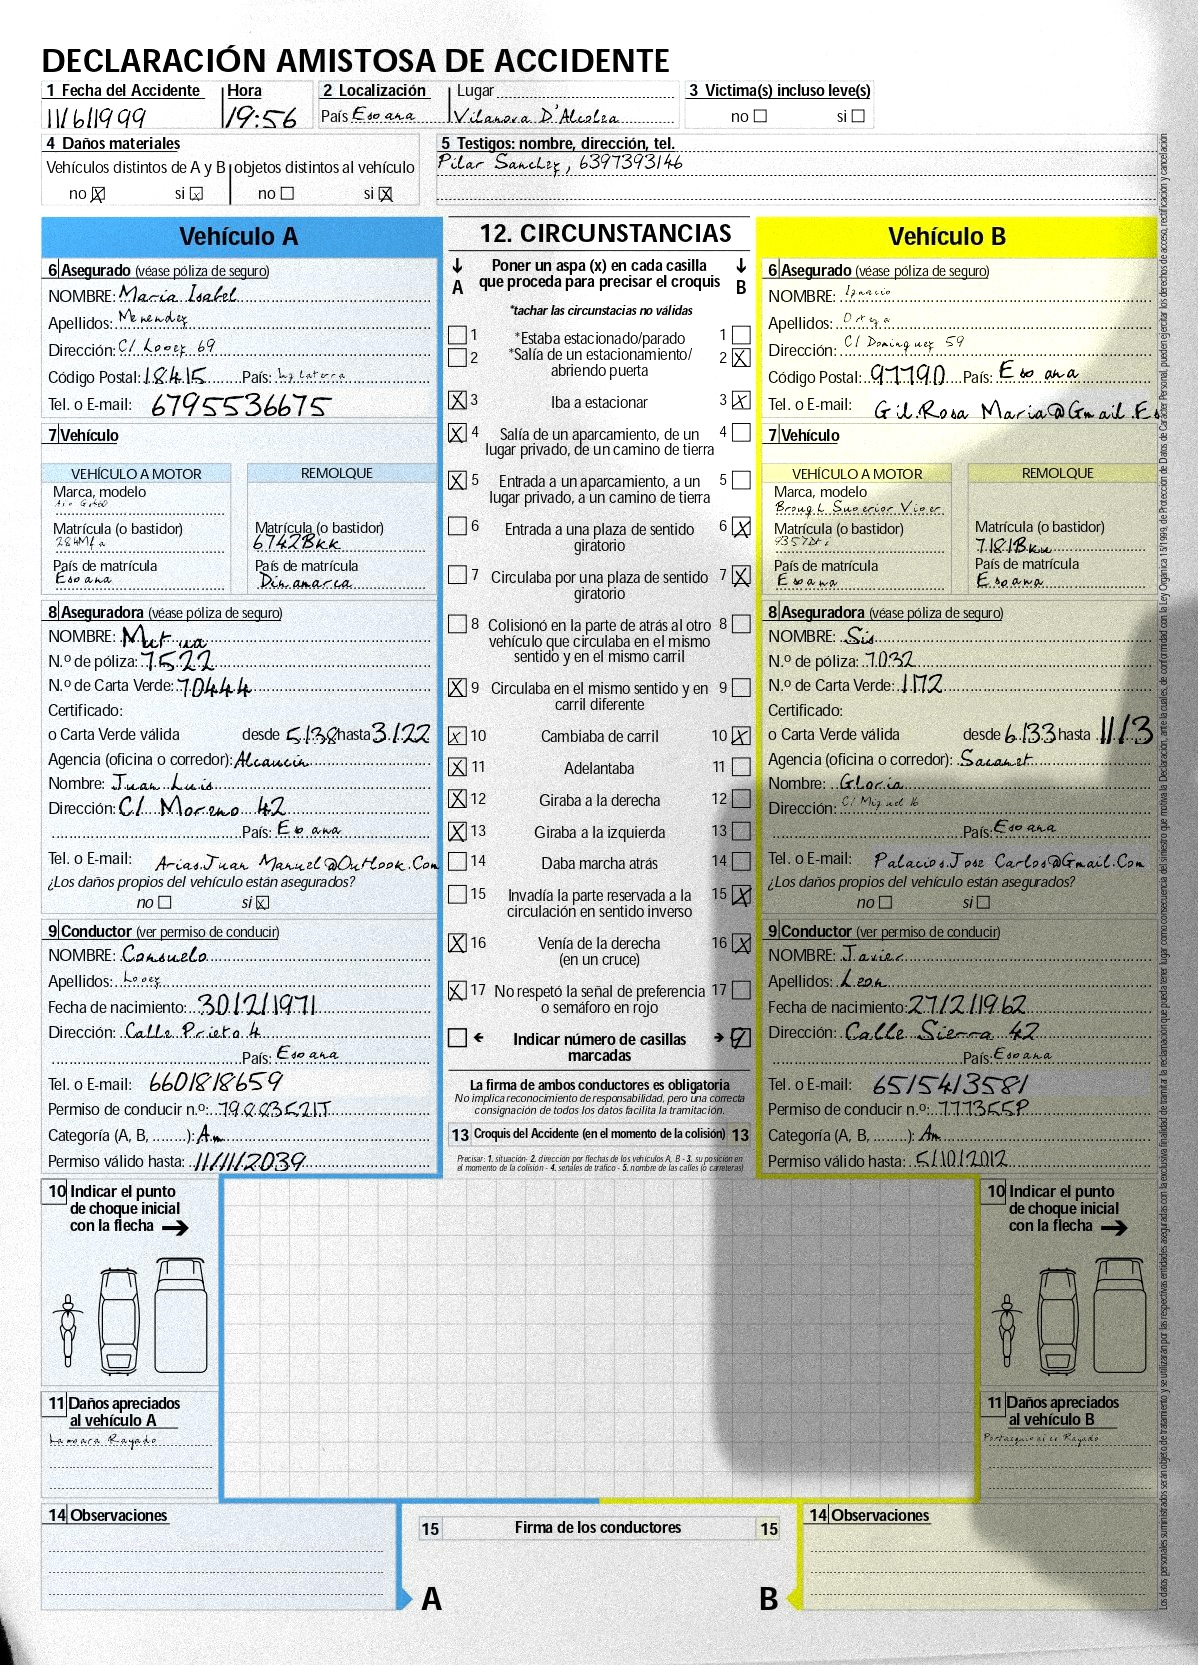 DECLARACIÓN AMISTOSA DE ACCIDENTE
1 Fecha del Accidente Hora 2 Localización Lugar 3 Victima(s) incluso leve(s)
11/6/1999 19:56 País Espana Vilanova D'Alcolea no si
4 Daños materiales
Vehículos distintos de A y B objetos distintos al vehículo
no X si X no si X
5 Testigos: nombre, dirección, tel.
Pilar Sanchez, 6397393146
Vehículo A
6 Asegurado (véase póliza de seguro)
NOMBRE: Maria Isabel
Apellidos: Menendez
Dirección: C/ Lopez 69
Código Postal: 18415 País: Inglaterra
Tel. o E-mail: 6795536675
7 Vehículo
VEHÍCULO A MOTOR REMOLQUE
Marca, modelo
Matrícula (o bastidor) Matrícula (o bastidor)
6742Bkk
País de matrícula País de matrícula
Espana Dinamarca
8 Aseguradora (véase póliza de seguro)
NOMBRE: Mutua
N.º de póliza: 7522
N.º de Carta Verde: 70444
Certificado:
o Carta Verde válida desde 5/38 hasta 3/22
Agencia (oficina o corredor): Alcaucin
Nombre: Juan Luis
Dirección: C/ Moreno 42
País: Espana
Tel. o E-mail: Arias.Juan Manuel@Outlook.Com
¿Los daños propios del vehículo están asegurados?
no si X
9 Conductor (ver permiso de conducir)
NOMBRE: Consuelo
Apellidos: Lopez
Fecha de nacimiento: 30/2/1971
Dirección: Calle Prieto 4
País: Espana
Tel. o E-mail: 6601818659
Permiso de conducir n.º: 79883521T
Categoría (A, B, ........): Am
Permiso válido hasta: 11/11/2039
12. CIRCUNSTANCIAS
A Poner un aspa (x) en cada casilla que proceda para precisar el croquis B
*tachar las circunstacias no válidas
1 *Estaba estacionado/parado 1
2 *Salía de un estacionamiento/ abriendo puerta 2 X
X 3 Iba a estacionar 3 X
X 4 Salía de un aparcamiento, de un lugar privado, de un camino de tierra 4
X 5 Entrada a un aparcamiento, a un lugar privado, a un camino de tierra 5
6 Entrada a una plaza de sentido giratorio 6 X
7 Circulaba por una plaza de sentido giratorio 7 X
8 Colisionó en la parte de atrás al otro vehículo que circulaba en el mismo sentido y en el mismo carril 8
X 9 Circulaba en el mismo sentido y en carril diferente 9
X 10 Cambiaba de carril 10 X
X 11 Adelantaba 11
X 12 Giraba a la derecha 12
X 13 Giraba a la izquierda 13
14 Daba marcha atrás 14
15 Invadía la parte reservada a la circulación en sentido inverso 15 X
X 16 Venía de la derecha (en un cruce) 16 X
X 17 No respetó la señal de preferencia o semáforo en rojo 17
Indicar número de casillas marcadas 9
La firma de ambos conductores es obligatoria
No implica reconocimiento de responsabilidad, pero una correcta consignación de todos los datos facilita la tramitación.
13 Croquis del Accidente (en el momento de la colisión) 13
Precisar: 1. situación- 2. dirección por flechas de los vehículos A, B - 3. su posición en
el momento de la colisión - 4. señales de tráfico - 5. nombre de las calles (o carreteras)
Vehículo B
6 Asegurado (véase póliza de seguro)
NOMBRE: Ignacio
Apellidos: Ortega
Dirección: C/ Dominguez 59
Código Postal: 97790 País: Espana
Tel. o E-mail: Gil.Rosa Maria@Gmail.Es
7 Vehículo
VEHÍCULO A MOTOR REMOLQUE
Marca, modelo
Brough Superior Viper
Matrícula (o bastidor) Matrícula (o bastidor)
País de matrícula País de matrícula
Espana Espana
8 Aseguradora (véase póliza de seguro)
NOMBRE: Sis
N.º de póliza: 7032
N.º de Carta Verde: 1172
Certificado:
o Carta Verde válida desde 6/33 hasta 11/3
Agencia (oficina o corredor): Sacanet
Nombre: Gloria
Dirección: C/ Miguel 16
País: Espana
Tel. o E-mail: Palacios.Jose Carlos@Gmail.Com
¿Los daños propios del vehículo están asegurados?
no si
9 Conductor (ver permiso de conducir)
NOMBRE: Javier
Apellidos: Leon
Fecha de nacimiento: 27/2/1962
Dirección: Calle Sierra 42
País: Espana
Tel. o E-mail: 6515413581
Permiso de conducir n.º: 777355P
Categoría (A, B, ........): Am
Permiso válido hasta: 5/10/2012
10 Indicar el punto de choque inicial con la flecha
10 Indicar el punto de choque inicial con la flecha
11 Daños apreciados al vehículo A
Lampara Rayado
11 Daños apreciados al vehículo B
Portaequipajes Rayado
14 Observaciones
15 Firma de los conductores 15
A B
14 Observaciones